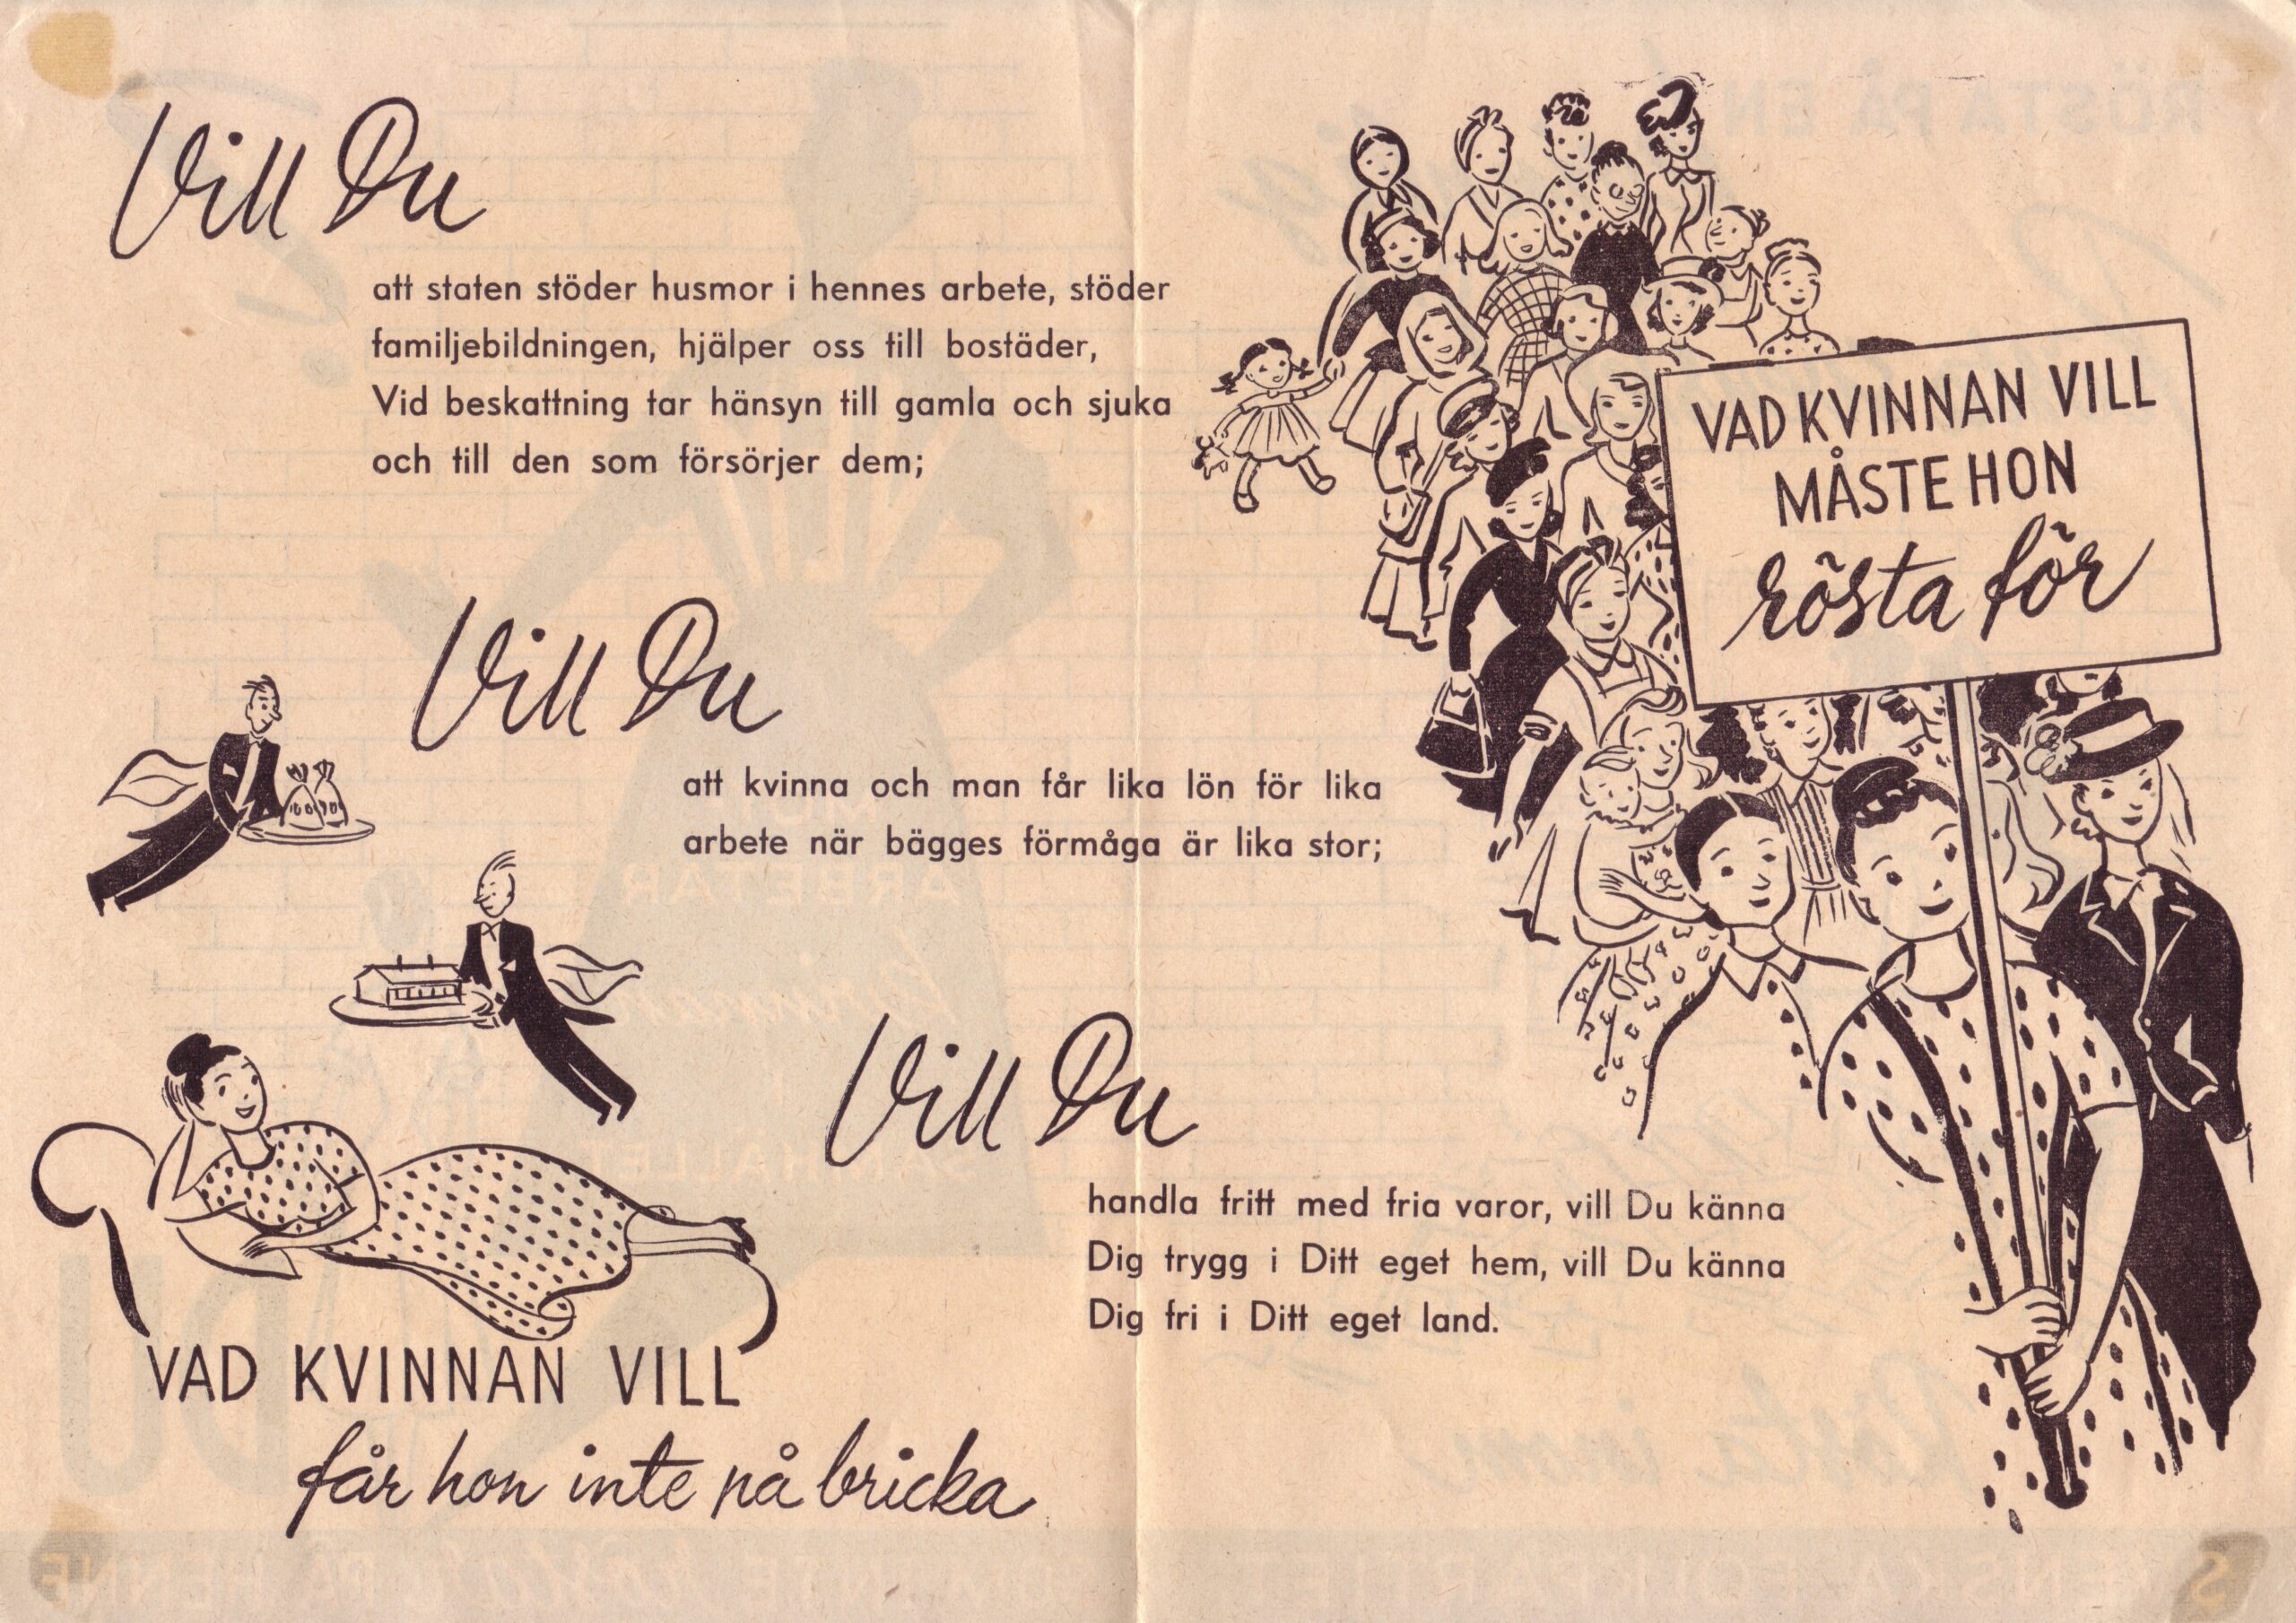 Vill Du
att staten stöder husmor i hennes arbete, stöder
familjebildningen, hjälper oss till bostäder,
Vid beskattning tar hänsyn till gamla och sjuka
och till den som försörjer dem;
Vill Du
att kvinna och man får lika lön för lika
arbete när bägges förmåga är lika stor;
Vill Du
handla fritt med fria varor, vill Du känna
Dig trygg i Ditt eget hem, vill Du känna
Dig fri i Ditt eget land.
VAD KVINNAN VILL
får hon inte på bricka
VAD KVINNAN VILL
MÅSTE HON
rösta för